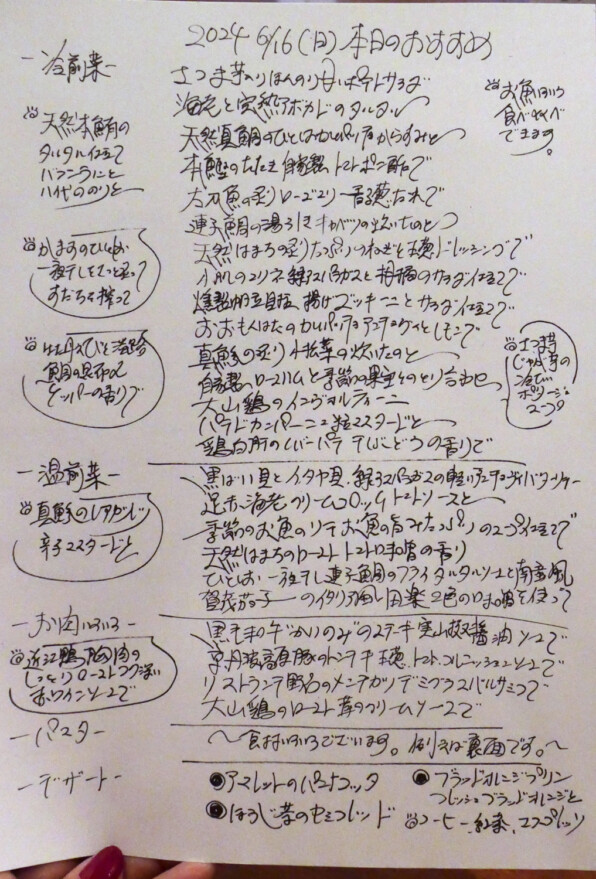 2024 6/16(日)本日のおすすめ
-冷前菜-
さつま芋入りほんのり甘いポテトサラダ
海老と完熟アボカドのタルタル
天然真鯛のひとはカルパッチョからすみと
本鰹のたたき 自家製トマトポン酢で
太刀魚の炙り ローズマリー香る 焦がれで
連子鯛の湯引き キャベツの炊いたのと
天然はまちの炙り たっぷりつねぎと 穂ドレッシングで
小肌のマリネ 緑アスパラガスと柑橘のサラダ仕立てで
燻製 揚げズッキーニとサラダ仕立てで
おおもんはたのカルパッチョ アンチョビとレモンで
真鯵の炙り 小松菜の炊いたのと
自家製ロースハムと季節の果実のとり合わせ
大山鶏のインヴォルティーニ
パテドカンパーニュ 粒マスタードと
鶏白肝のレバーパテ 干しぶどうの香りで
お魚はいろいろ
食べくらべ
できます。
天然本鮪の
タルタル仕立て
バフンうにと
八代ののりと
かますのひとしお
一夜干しをさっと炙って
すだちを搾って
牡丹えびと淡路
鯛の昆布〆
ケッパーの香りで
さつま芋
じゃが芋の
冷たい
ポタージュ
スープ
-温前菜-
黒ばい貝とイタヤ貝、緑アスパラガスの軽いアンチョビバターソテー
足赤海老クリームコロッケ トマトソースと
季節のお魚のソテー お魚の旨みたっぷりのスープ仕立てで
天然はまちのロースト トマト味噌の香り
ひとしお一夜干し連子鯛のフライ タルタルソースと南蛮風
賀茂茄子のイタリア風田楽 2色の味噌を使って
真鯵のレアカツレツ
辛子マスタードと
-お肉いろいろ-
黒毛和牛“かいのみ”のステーキ 実山椒醤油ソースで
京丹波高原豚のトンテキ 穂、トマト、コルニッションソースで
リストランテ野呂のメンチカツ デミグラスバルサミコで
大山鶏のロースト 茸のクリームソースで
近江鴨胸肉の
しっとりロースト コク深い
赤ワインソースで
-パスタ-
～食材いろいろございます。例えば裏面です。～
-デザート-
●アマレットのパンナコッタ
●ほうじ茶のセミフレッド
●ブラッドオレンジプリン
フレッシュブラッドオレンジと
コーヒー、紅茶、エスプレッソ